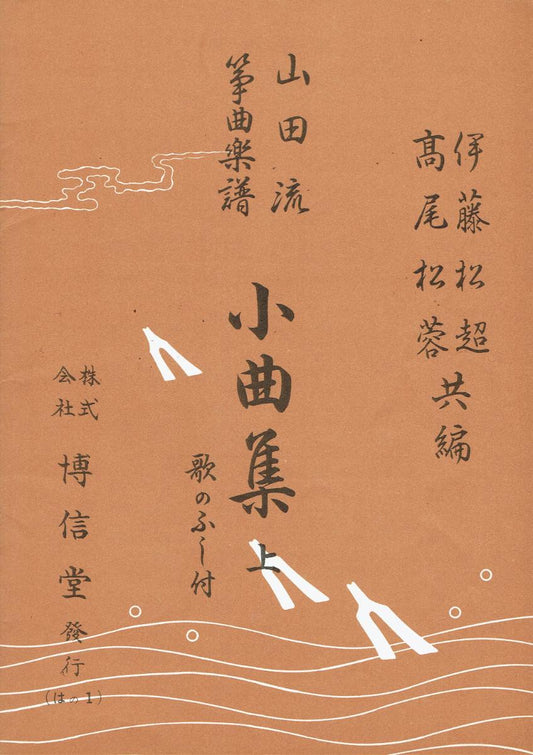 伊藤松超
髙尾松蓉
共編
山田流
箏曲樂譜
小曲集 上
歌のふし付
株式
会社
博信堂發行
(はの1)